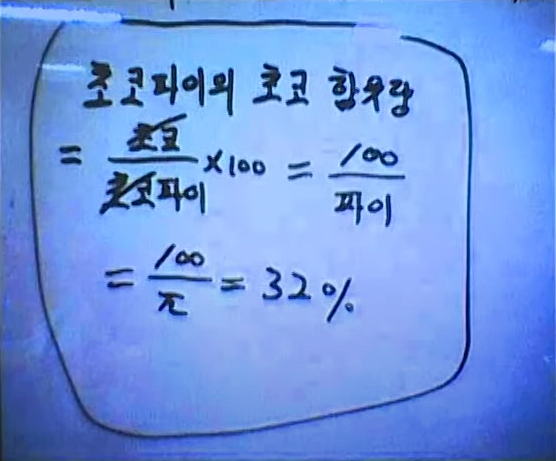 초코파이의 초코 함유량
= 초코/초코파이 ×100 = 100/파이
= 100/π = 32%